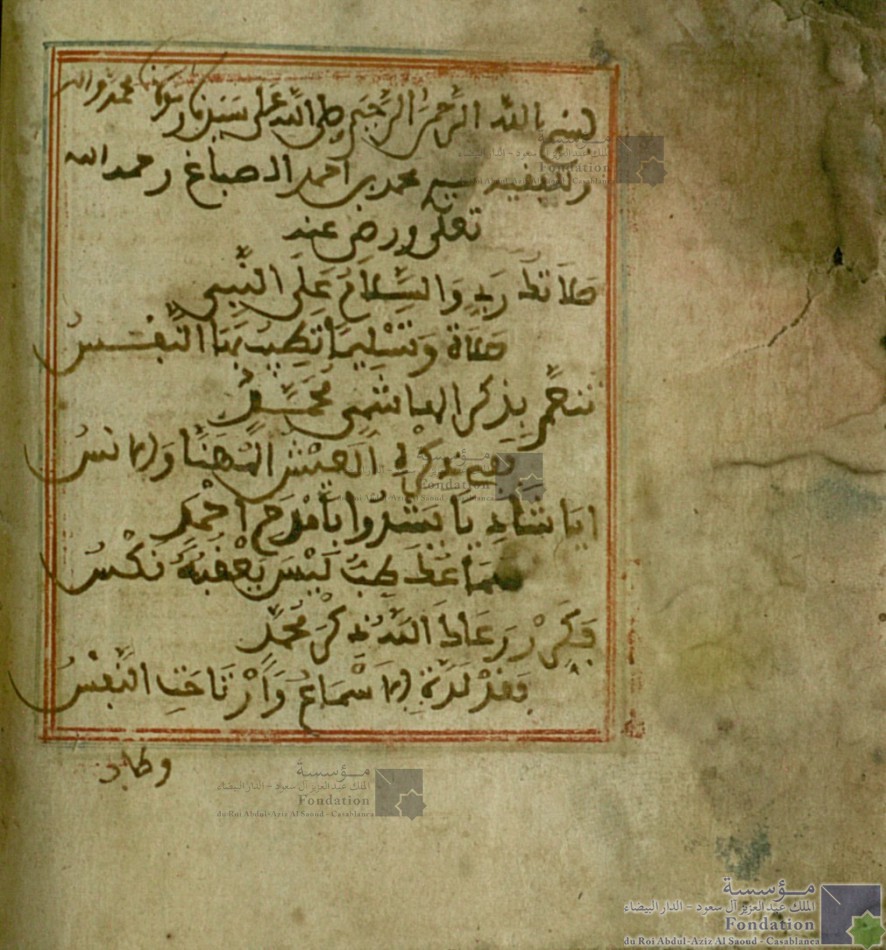 بسم الله الرحمن الرحيم صلى الله على سيدنا ومولانا محمد واله
للفقيه سيد محمد بن احمد الصباغ رحمه الله
تعلى ورضي عنه
صلاة ربي والسلام على النبي
صلاة وتسليما تطيب بها النفس
بذكر الهاشمي محمد
العيش المهنا والانس
ايا شادي يا يشدوا بامدح احمد
سماعك طب ليس يعقبه نكس
فكرر رعاك الله ذكر محمد
فقد لذة الاسماع وارتاحت النفس
وطاب
مؤسسة
الملك عبد العزيز آل سعود - الدار البيضاء
Fondation
du Roi Abdul-Aziz Al Saoud - Casablanca
مؤسسة
الملك عبد العزيز آل سعود - الدار البيضاء
Fondation
du Roi Abdul-Aziz Al Saoud - Casablanca